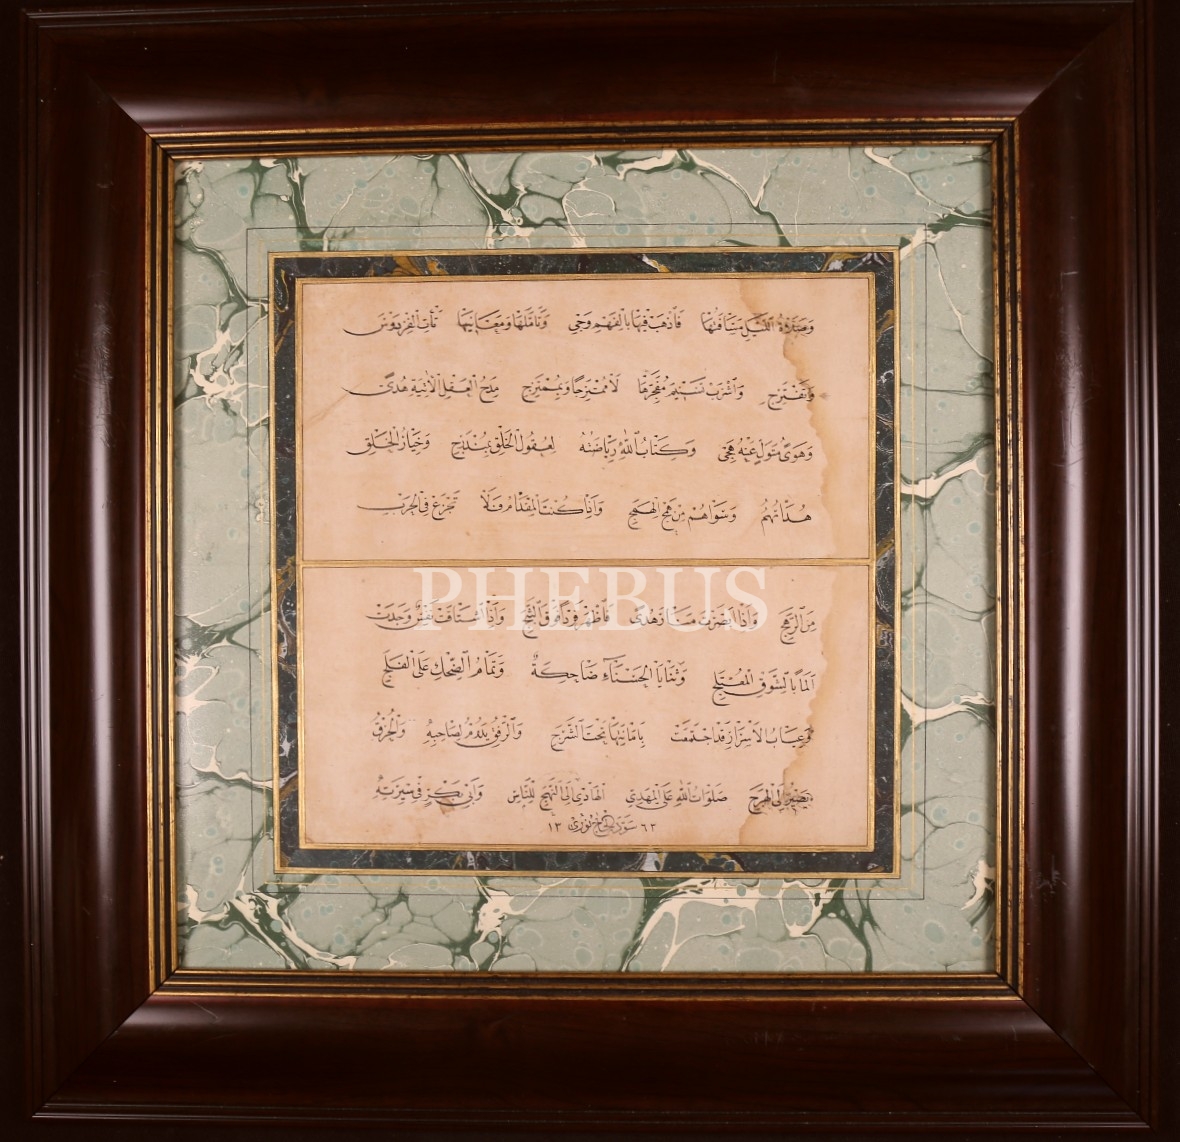 وَصَلَاةُ اللَّيْلِ مَسَافَتُهَا فَاذْهَبْ فِيهَا بِالْفَهْمِ وَجِي وَتَأَمَّلْهَا وَمَعَانِيهَا تَأْتِ الْفِرْدَوْسَ
وَتَفْتَرِجِ وَاشْرَبْ تَسْنِيمَ مُفَجَّرِهَا لَا مُمْتَزِجًا وَبِمُمْتَزِجِ مُدِحَ الْعَقْلُ الْآتِيهِ هُدًى
وَهَوًى مُتَوَلٍّ عَنْهُ هُجِي وَكِتَابُ اللّٰهِ رِيَاضَتُهُ لِعُقُولِ الْخَلْقِ بِمُنْدَرِجِ وَخِيَارُ الْخَلْقِ
هُدَاتُهُمُ وَسِوَاهُمْ مِنْ هَمَجِ الْهَمَجِ وَإِذَا كُنْتَ الْمِقْدَامَ فَلَا تَجْزَعْ فِي الْحَرْبِ
PHEBUS
مِنَ الرَّهَجِ وَإِذَا أَبْصَرْتَ مَنَارَ هُدًى فَاظْهَرْ فَرْدًا فَوْقَ الثَّبَجِ وَإِذَا اشْتَاقَتْ نَفْسٌ وَجَدَتْ
أَلَمًا بِالشَّوْقِ الْمُعْتَلِجِ وَثَنَايَا الْحَسْنَاءِ ضَاحِكَةٌ وَتَمَامُ الضِّحْكِ عَلَى الْفَلَجِ
وَعِيَابُ الْأَسْرَارِ قَدِ اجْتَمَعَتْ بِأَمَانَتِهَا تَحْتَ الشَّرَجِ وَالرِّفْقُ يَدُومُ لِصَاحِبِهِ وَالْخُرْقُ
يَصِيرُ إِلَى الْهَرَجِ صَلَوَاتُ اللّٰهِ عَلَى الْمَهْدِي الْهَادِي إِلَى النَّهَجِ لِلنَّاسِ وَأَبِي بَكْرٍ فِي سِيرَتِهِ
٦٣ سوّد الحاج نوري ١٣